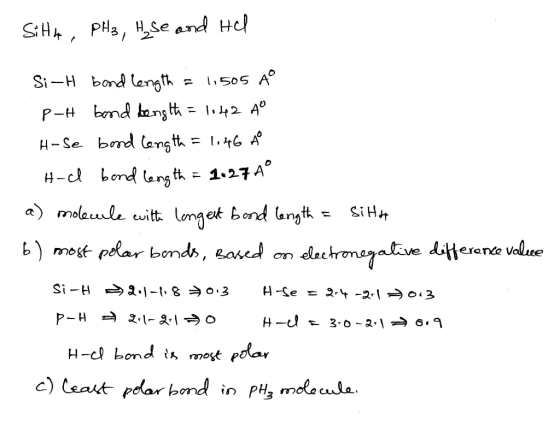 SiH4, PH3, H2Se and HCl
Si-H bond length = 1.505 A°
P-H bond length = 1.42 A°
H-Se bond length = 1.46 A°
H-Cl bond length = 1.27 A°
a) molecule with longest bond length = SiH4
b) most polar bonds, Based on electronegative difference value
Si-H ⇒ 2.1-1.8 ⇒ 0.3 H-Se = 2.4-2.1 ⇒ 0.3
P-H ⇒ 2.1-2.1 ⇒ 0 H-Cl = 3.0-2.1 ⇒ 0.9
H-Cl bond is most polar
c) Least polar bond in PH3 molecule.